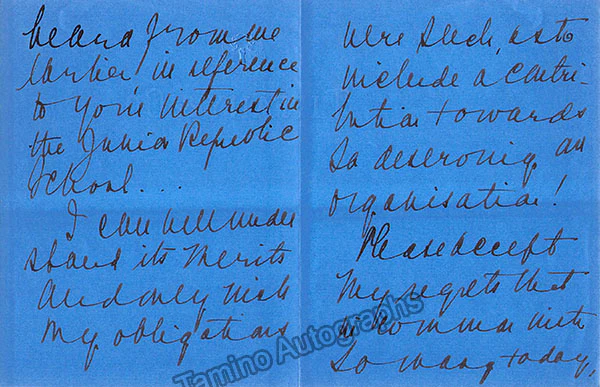 heard from me
earlier in reference
to your interest in
the Junior Republic
School...
I can well under
stand its merits
and only wish
my obligations
were such, as to
include a contri-
bution towards
so deserving an
organisation!
Please accept
my regrets that
in common with
so many today,
Tamino Autographs